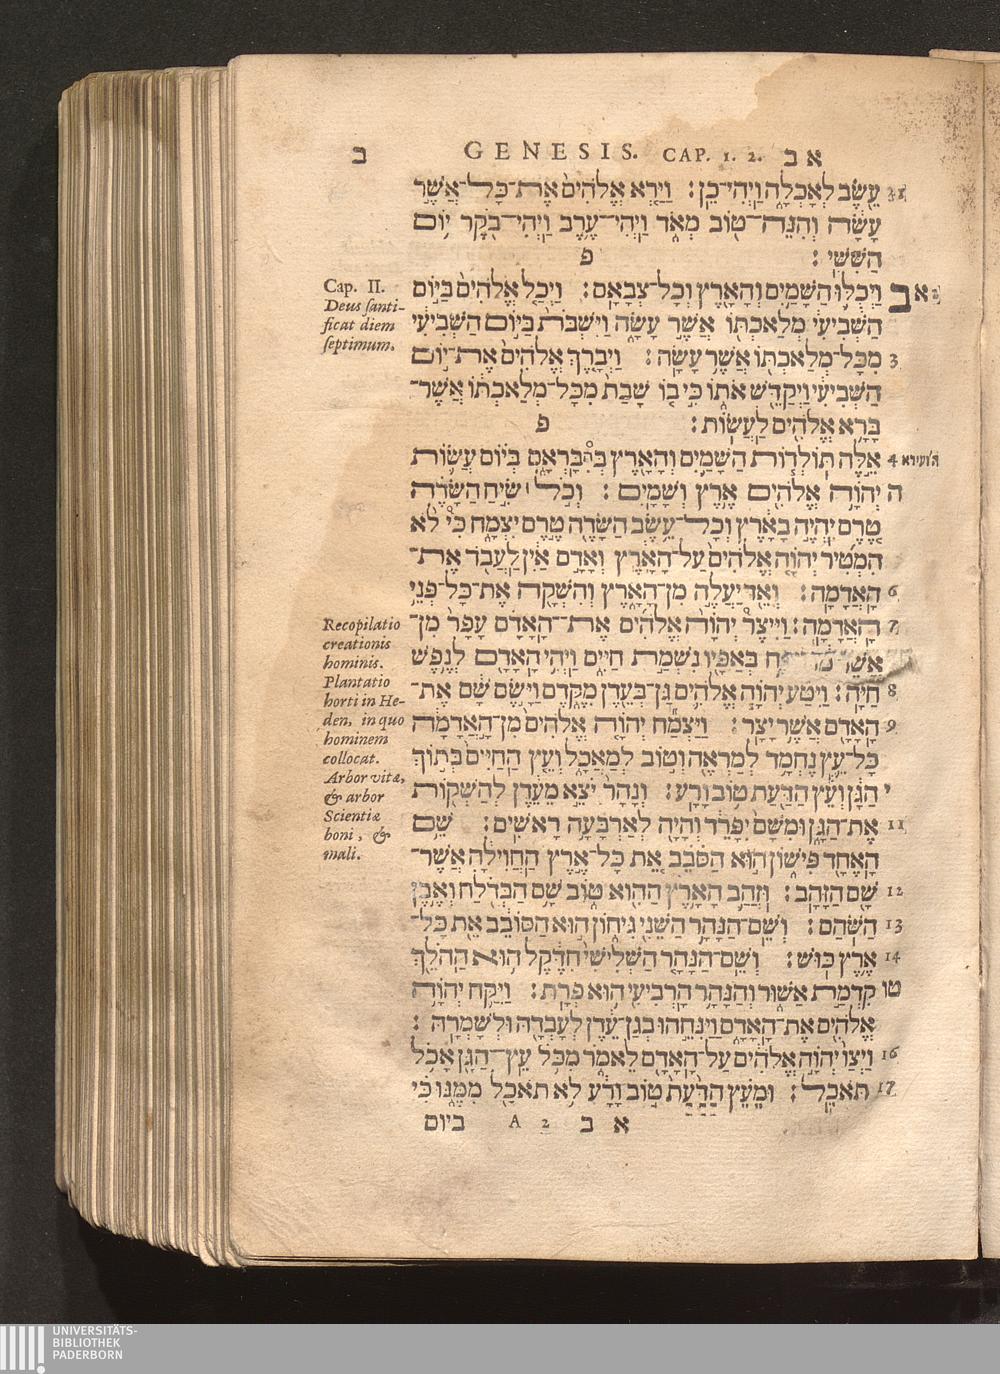 ב GENESIS. CAP. 1. 2. א ב
31 עֵשֶׂב לְאָכְלָה וַיְהִי־כֵן׃ וַיַּרְא אֱלֹהִים אֶת־כָּל־אֲשֶׁר
עָשָׂה וְהִנֵּה־טוֹב מְאֹד וַיְהִי־עֶרֶב וַיְהִי־בֹקֶר יוֹם
הַשִּׁשִּׁי׃ פ
Cap. II.
Deus sancti-
ficat diem
septimum.
ב א 2 וַיְכֻלּוּ הַשָּׁמַיִם וְהָאָרֶץ וְכָל־צְבָאָם׃ וַיְכַל אֱלֹהִים בַּיּוֹם
הַשְּׁבִיעִי מְלַאכְתּוֹ אֲשֶׁר עָשָׂה וַיִּשְׁבֹּת בַּיּוֹם הַשְּׁבִיעִי
3 מִכָּל־מְלַאכְתּוֹ אֲשֶׁר עָשָׂה׃ וַיְבָרֶךְ אֱלֹהִים אֶת־יוֹם
הַשְּׁבִיעִי וַיְקַדֵּשׁ אֹתוֹ כִּי בוֹ שָׁבַת מִכָּל־מְלַאכְתּוֹ אֲשֶׁר־
בָּרָא אֱלֹהִים לַעֲשׂוֹת׃ פ
4 אֵלֶּה תוֹלְדוֹת הַשָּׁמַיִם וְהָאָרֶץ בְּהִבָּרְאָם בְּיוֹם עֲשׂוֹת
ה יְהוָֹה אֱלֹהִים אֶרֶץ וְשָׁמָיִם׃ וְכֹל שִׂיחַ הַשָּׂדֶה
טֶרֶם יִהְיֶה בָאָרֶץ וְכָל־עֵשֶׂב הַשָּׂדֶה טֶרֶם יִצְמָח כִּי לֹא
הִמְטִיר יְהוָֹה אֱלֹהִים עַל־הָאָרֶץ וְאָדָם אַיִן לַעֲבֹד אֶת־
6 הָאֲדָמָה׃ וְאֵד יַעֲלֶה מִן־הָאָרֶץ וְהִשְׁקָה אֶת־כָּל־פְּנֵי
Recopilatio
creationis
hominis.
Plantatio
horti in He-
den, in quo
hominem
collocat.
Arbor vitæ,
& arbor
Scientiæ
boni, &
mali.
7 הָאֲדָמָה׃ וַיִּיצֶר יְהוָֹה אֱלֹהִים אֶת־הָאָדָם עָפָר מִן־
בְּאַפָּיו נִשְׁמַת חַיִּים וַיְהִי הָאָדָם לְנֶפֶשׁ
8 חַיָּה׃ וַיִּטַּע יְהוָֹה אֱלֹהִים גַּן־בְּעֵדֶן מִקֶּדֶם וַיָּשֶׂם שָׁם אֶת־
9 הָאָדָם אֲשֶׁר יָצָר׃ וַיַּצְמַח יְהוָֹה אֱלֹהִים מִן־הָאֲדָמָה
כָּל־עֵץ נֶחְמָד לְמַרְאֶה וְטוֹב לְמַאֲכָל וְעֵץ הַחַיִּים בְּתוֹךְ
י הַגָּן וְעֵץ הַדַּעַת טוֹב וָרָע׃ וְנָהָר יֹצֵא מֵעֵדֶן לְהַשְׁקוֹת
11 אֶת־הַגָּן וּמִשָּׁם יִפָּרֵד וְהָיָה לְאַרְבָּעָה רָאשִׁים׃ שֵׁם
הָאֶחָד פִּישׁוֹן הוּא הַסֹּבֵב אֵת כָּל־אֶרֶץ הַחֲוִילָה אֲשֶׁר־
12 שָׁם הַזָּהָב׃ וּזֲהַב הָאָרֶץ הַהִוא טוֹב שָׁם הַבְּדֹלַח וְאֶבֶן
13 הַשֹּׁהַם׃ וְשֵׁם־הַנָּהָר הַשֵּׁנִי גִּיחוֹן הוּא הַסּוֹבֵב אֵת כָּל־
14 אֶרֶץ כּוּשׁ׃ וְשֵׁם־הַנָּהָר הַשְּׁלִישִׁי חִדֶּקֶל הוּא הַהֹלֵךְ
טו קִדְמַת אַשּׁוּר וְהַנָּהָר הָרְבִיעִי הוּא פְרָת׃ וַיִּקַּח יְהוָֹה
אֱלֹהִים אֶת־הָאָדָם וַיַּנִּחֵהוּ בְגַן־עֵדֶן לְעָבְדָהּ וּלְשָׁמְרָהּ׃
16 וַיְצַו יְהוָֹה אֱלֹהִים עַל־הָאָדָם לֵאמֹר מִכֹּל עֵץ־הַגָּן אָכֹל
17 תֹּאכֵל׃ וּמֵעֵץ הַדַּעַת טוֹב וָרָע לֹא תֹאכַל מִמֶּנּוּ כִּי
א ב A 2 ביום
UNIVERSITÄTS-
BIBLIOTHEK
PADERBORN